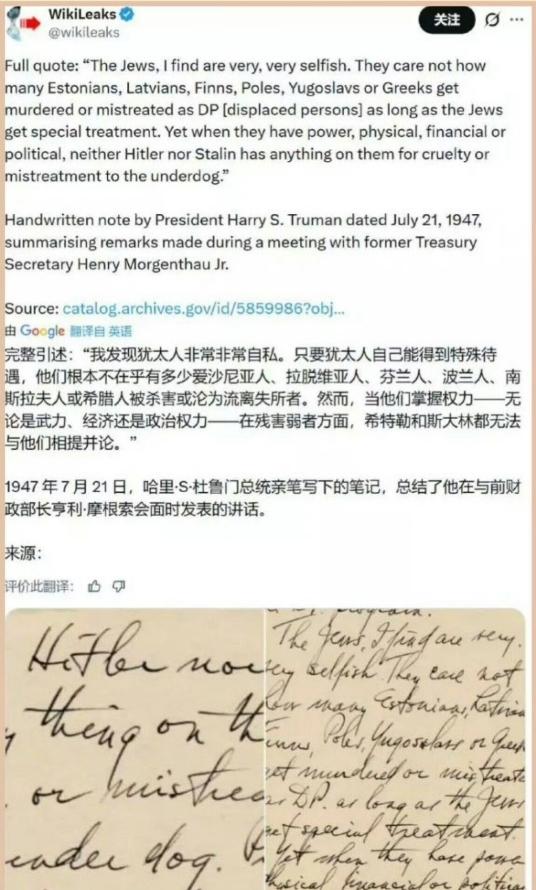 WikiLeaks
@wikileaks
关注
Full quote: “The Jews, I find are very, very selfish. They care not how
many Estonians, Latvians, Finns, Poles, Yugoslavs or Greeks get
murdered or mistreated as DP [displaced persons] as long as the Jews
get special treatment. Yet when they have power, physical, financial or
political, neither Hitler nor Stalin has anything on them for cruelty or
mistreatment to the underdog.”
Handwritten note by President Harry S. Truman dated July 21, 1947,
summarising remarks made during a meeting with former Treasury
Secretary Henry Morgenthau Jr.
Source: catalog.archives.gov/id/5859986?obj...
由 Google 翻译自 英语
完整引述：“我发现犹太人非常非常自私。只要犹太人自己能得到特殊待
遇，他们根本不在乎有多少爱沙尼亚人、拉脱维亚人、芬兰人、波兰人、南
斯拉夫人或希腊人被杀害或沦为流离失所者。然而，当他们掌握权力——无
论是武力、经济还是政治权力——在残害弱者方面，希特勒和斯大林都无法
与他们相提并论。”
1947 年 7 月 21 日，哈里·S·杜鲁门总统亲笔写下的笔记，总结了他在与前财
政部长亨利·摩根索会面时发表的讲话。
来源：
评价此翻译：
Hitler nor
thing on th
or mistrea
under dog.
program.
The Jews, I find are very,
very selfish. They care not
how many Estonians, Latvian
Finns, Poles, Yugoslavs or Greek
get murdered or mistreate
as D.P. as long as the Jews
get special treatment.
Yet when they have powe
physical, financial or politica